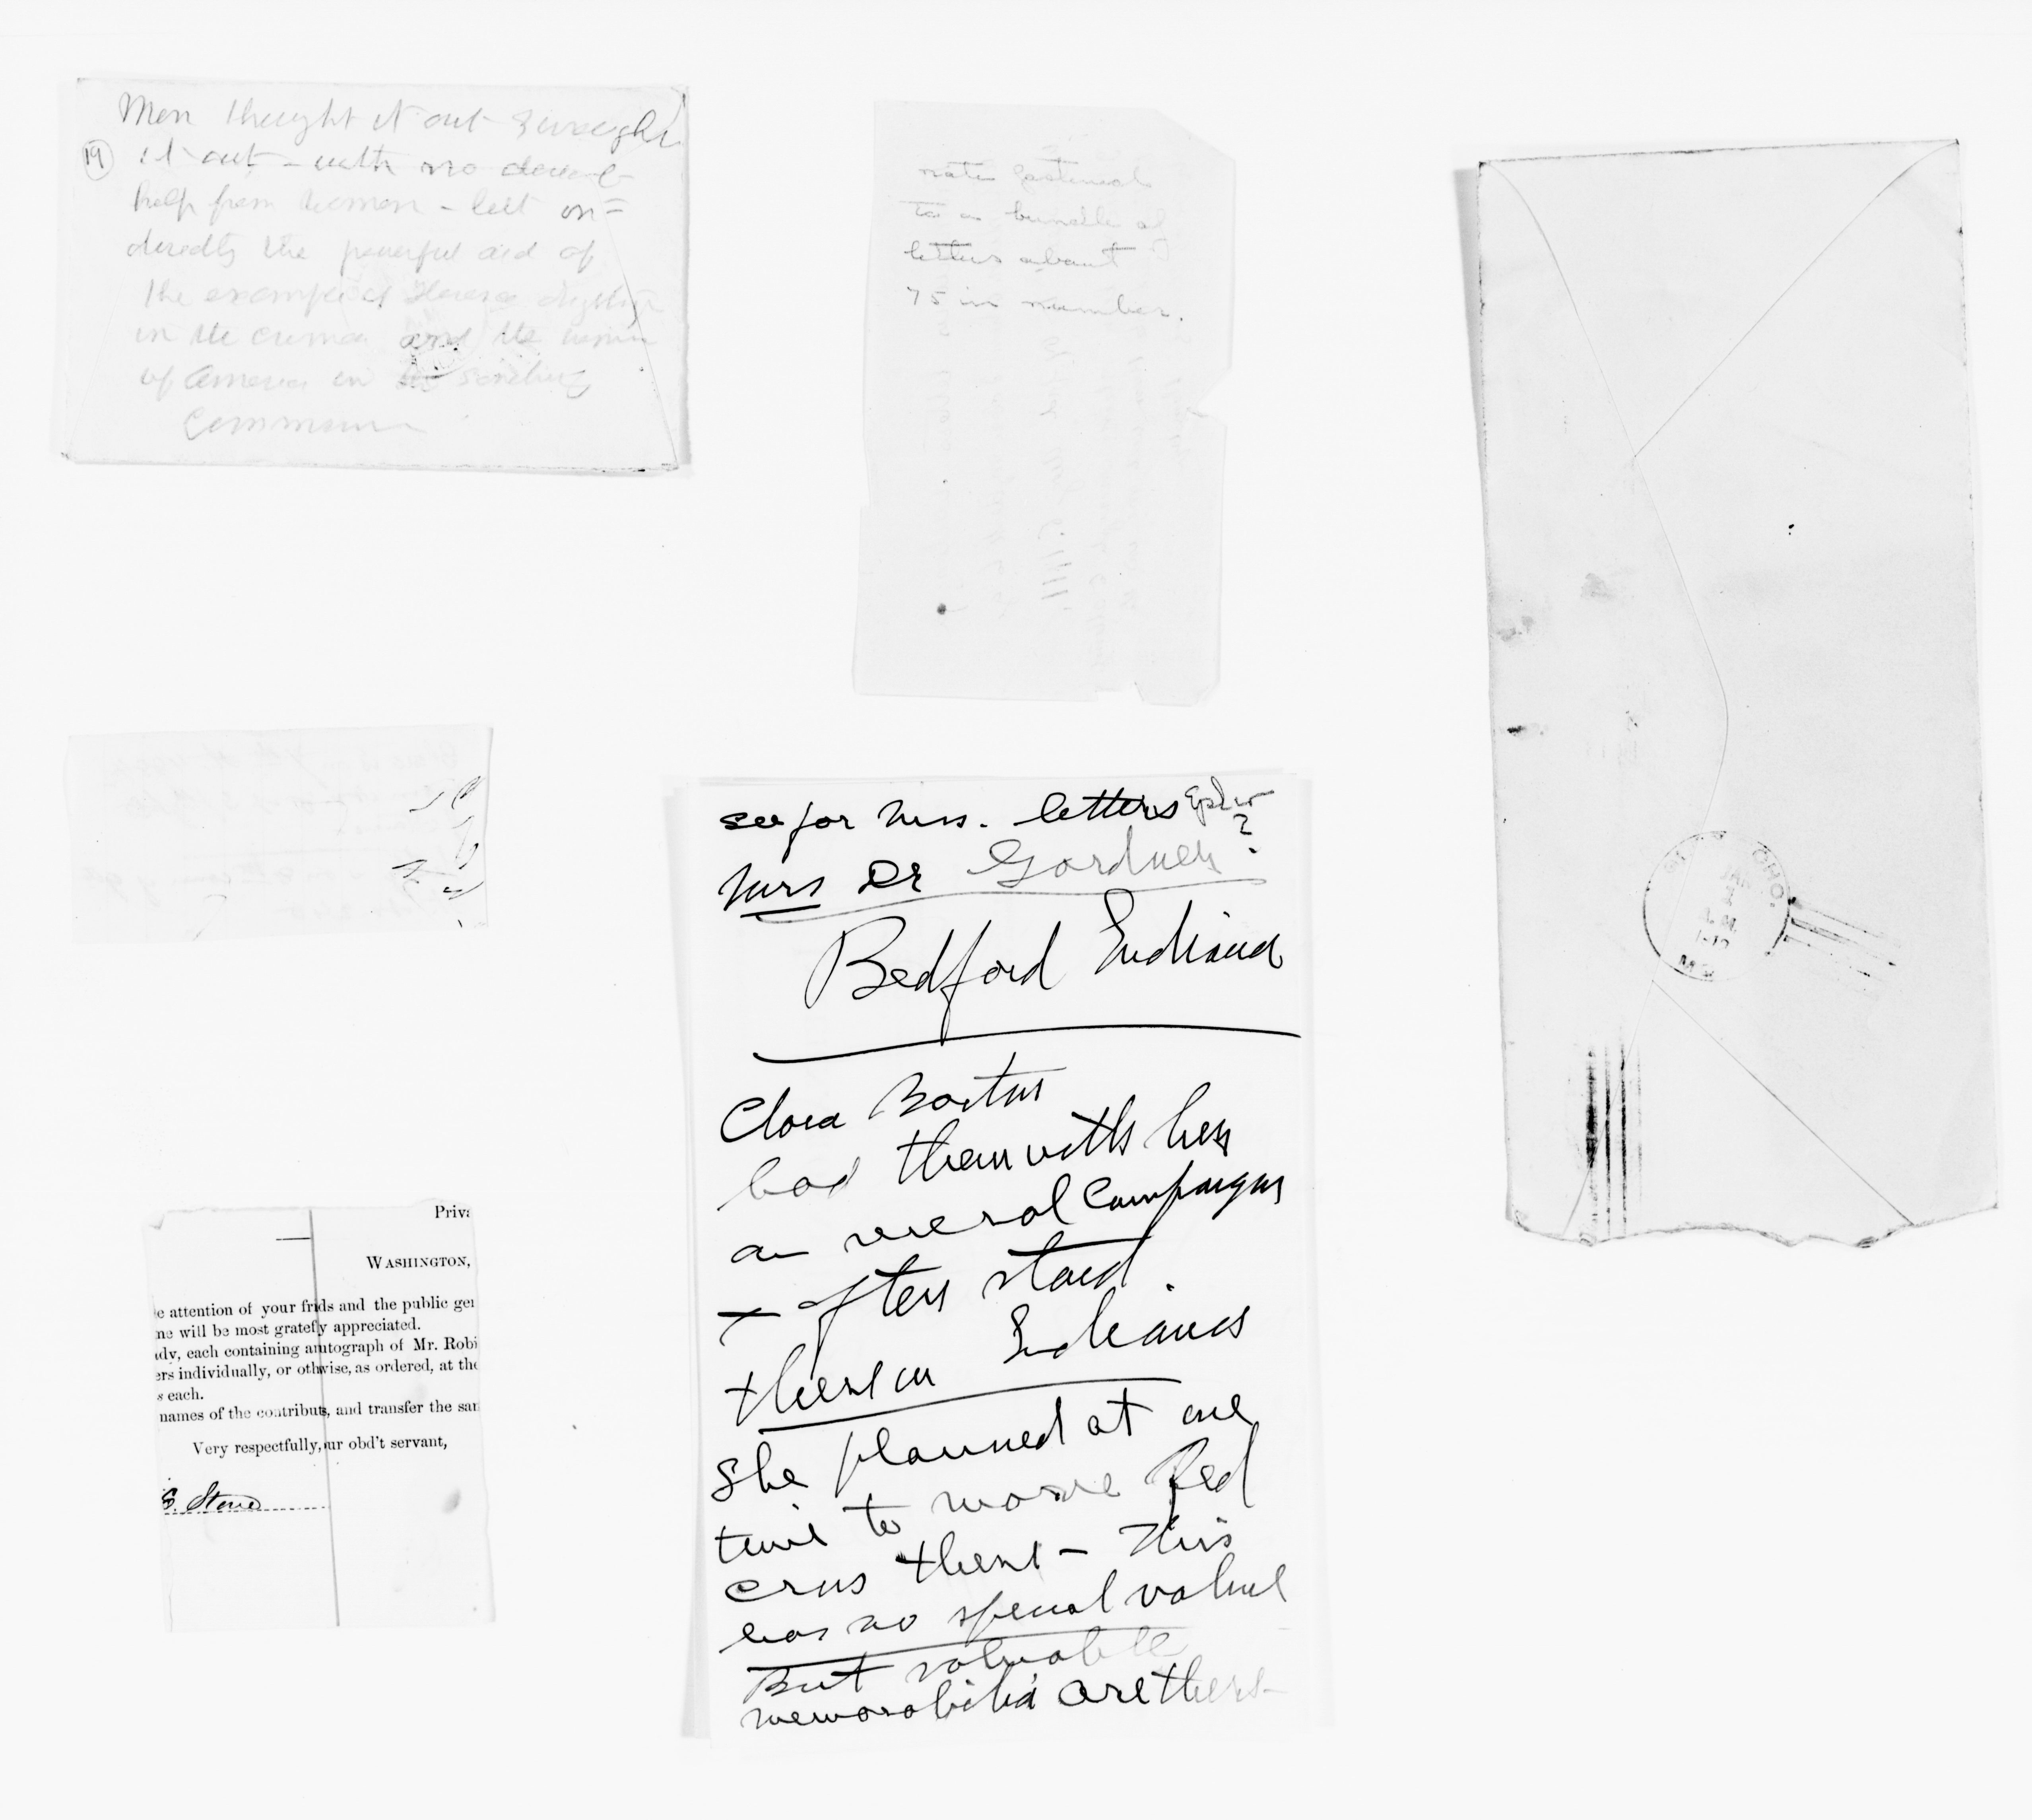 Men thought it out & wrought
19 it out - with no direct
help from women - but in=
directly the powerful aid of
the example of Florence
in the Crimea and the women
of America in Sanitary
Commission
note fastened
to a bundle of
letters about
75 in number.
see for Miss. letters
?
Mrs Dr Gardner
Bedford Indiana
Clara Barton
had them with her
on several Campaigns
+ often staid
there in Indiana
She planned at one
time to move Red
Cross there - This
has no special value
But valuable
memorabilia are there
Priva
WASHINGTON,
e attention of your frids and the public gen
ne will be most gratefly appreciated.
adv, each containing autograph of Mr. Robi
ers individually, or othwise, as ordered, at the
s each.
names of the contributs, and transfer the sam
Very respectfully, ur obd't servant,
S. Stone
MO.